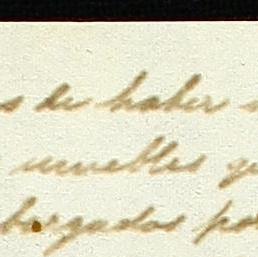 s de haber s
muebles qu
bargados po